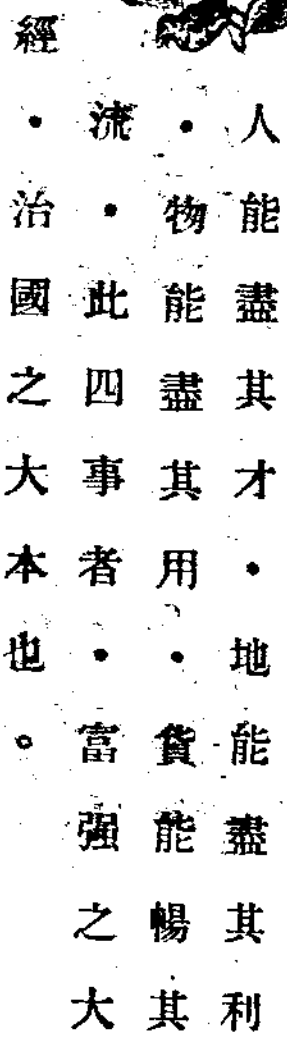 人能盡其才・地能盡其利
・物能盡其用・貨能暢其
流・此四事者・富强之大
經・治國之大本也。